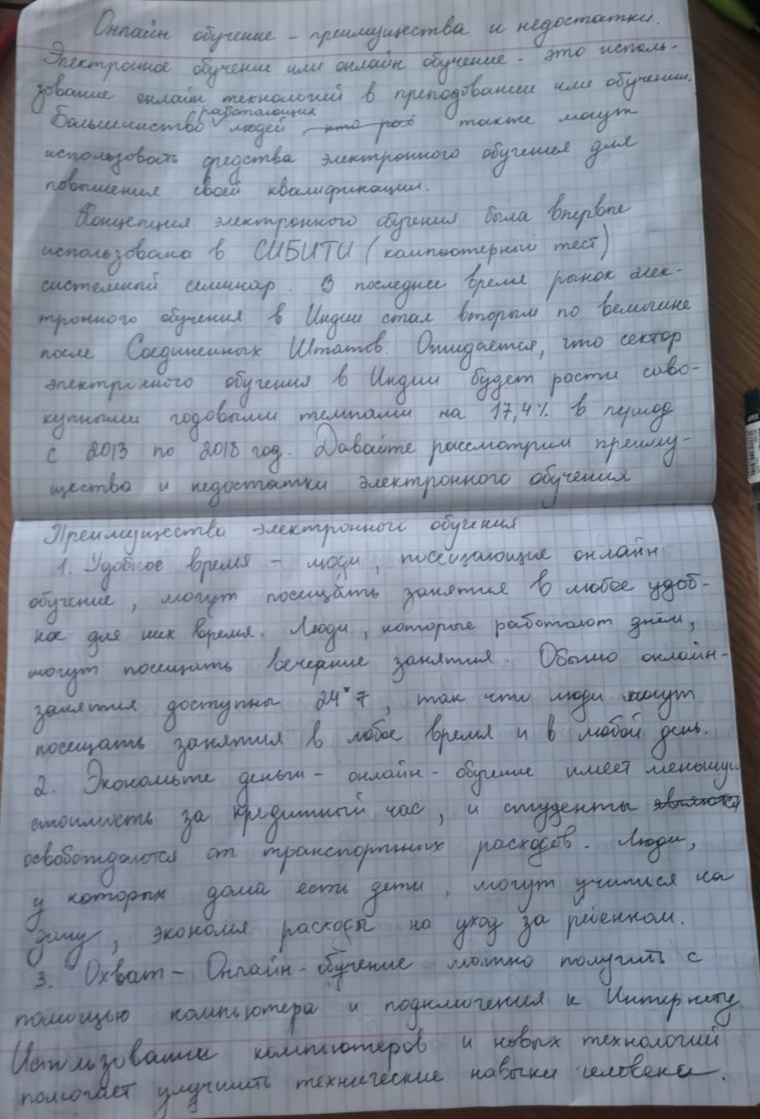 Онлайн обучение - преимущества и недостатки.
Электронное обучение или онлайн обучение - это исполь-
зование онлайн технологий в преподовании или обучении.
Большинство работающих людей также могут
использовать средства электронного обучения для
повышения своей квалификации.
Концепция электронного обучения была впервые
использована в СИБИТИ (компьютерный тест)
системный семинар. В последнее время рынок элек-
тронного обучения в Индии стал вторым по величине
после Соединенных Штатов. Ожидается, что сектор
электронного обучения в Индии будет расти сово-
купными годовыми темпами на 17,4% в период
с 2013 по 2018 год. Давайте рассмотрим преиму-
щества и недостатки электронного обучения
Преимущества электронного обучения
1. Удобное время - люди, посещающие онлайн
обучение, могут посещать занятия в любое удоб-
ное для них время. Люди, которые работают днём,
могут посещать вечерние занятия. Обычно онлайн-
занятия доступны 24*7, так что люди могут
посещать занятия в любое время и в любой день.
2. Экономьте деньги - онлайн-обучение имеет меньшую
стоимость за кредитный час, и студенты
освобождаются от транспортных расходов. Люди,
у которых дома есть дети, могут учиться на
дому, экономя расходы на уход за ребенком.
3. Охват - Онлайн-обучение можно получить с
помощью компьютера и подключения к Интернету.
Использование компьютеров и новых технологий
помогает улучшить технические навыки человека.